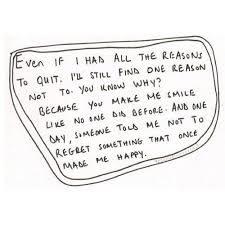 Even IF I HAD ALL THE REASONS
TO QUIT. I'LL STILL FIND ONE REASON
NOT TO. YOU KNOW WHY?
BECAUSE YOU MAKE ME SMILE
LIKE NO ONE DID BEFORE. AND ONE
DAY, SOMEONE TOLD ME NOT TO
REGRET SOMETHING THAT ONCE
MADE ME HAPPY.